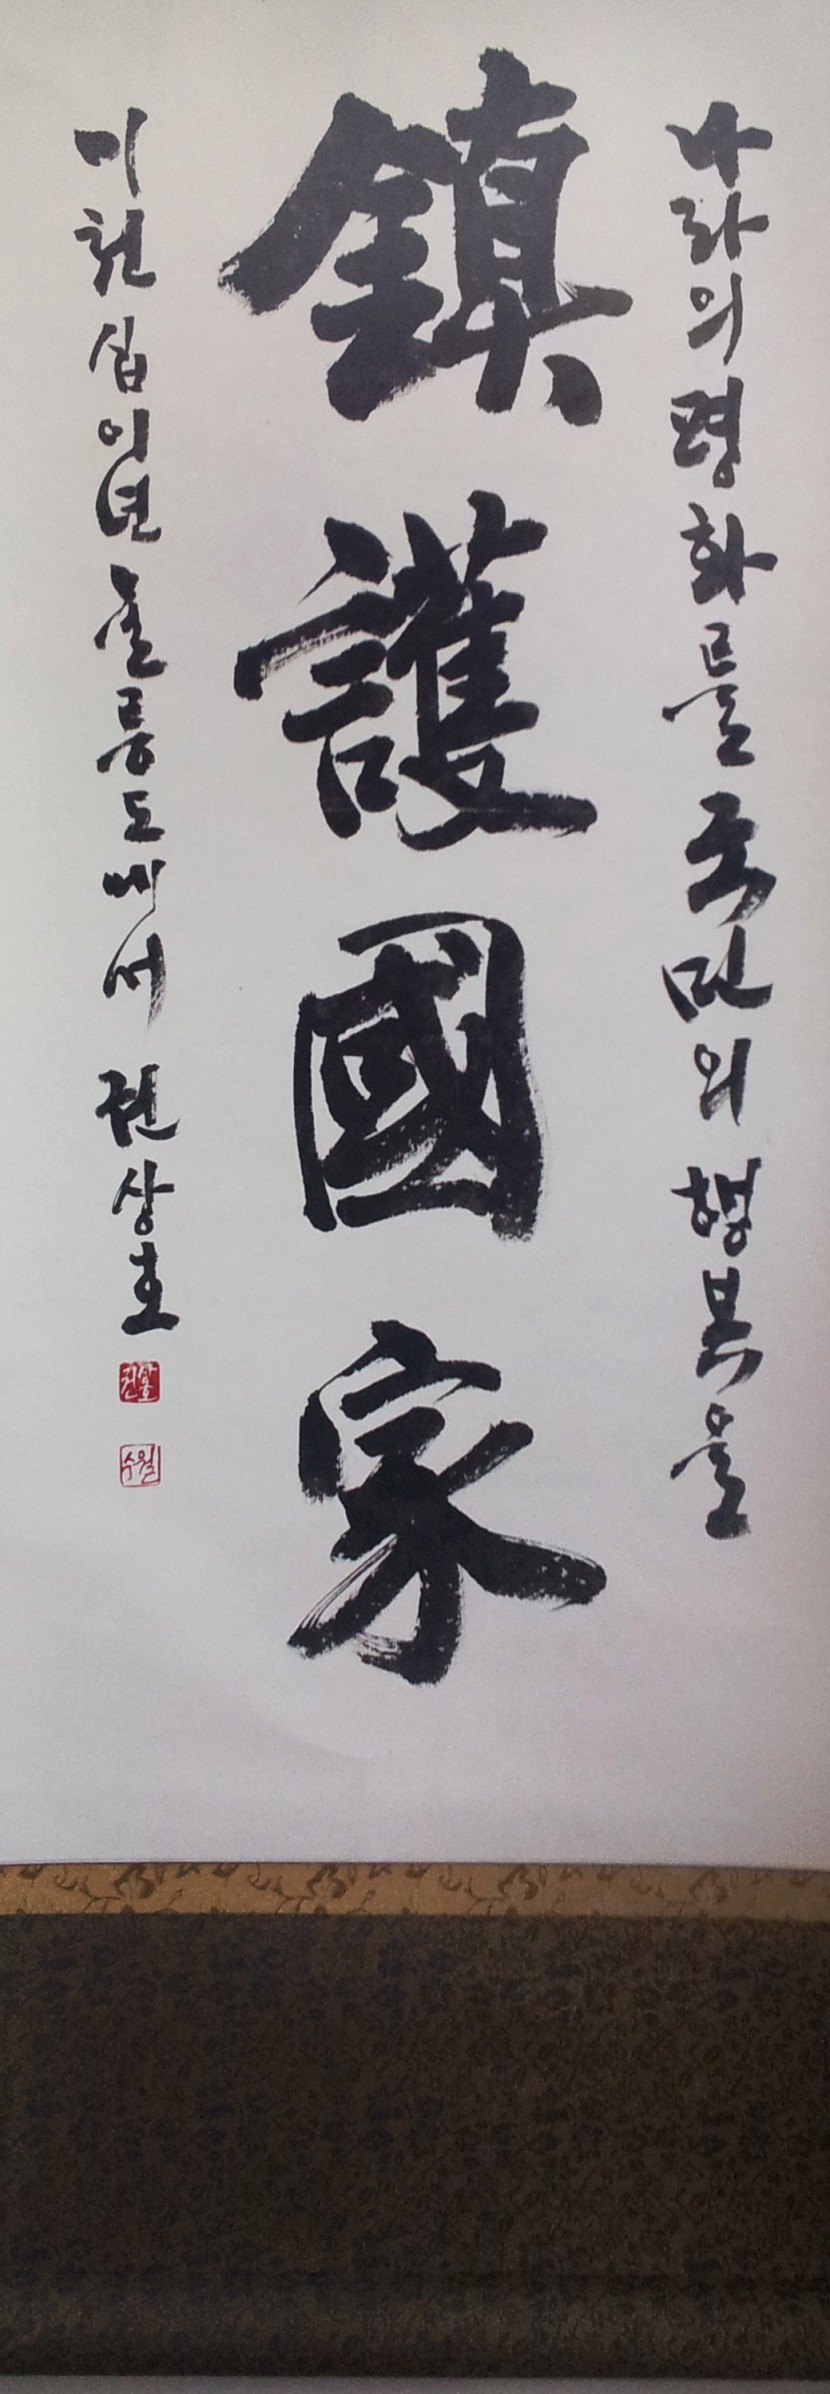 나라의 평화를 국민의 행복을
鎭護國家
이천십이년 울릉도에서 권상호
권상호
수월